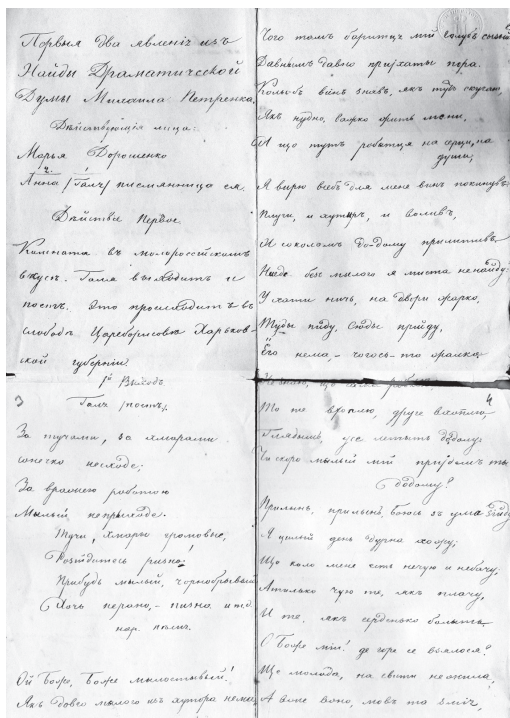 Первыя два явленія изъ
Найды Драматической
Думы Михаила Петренка
Дѣйствующія лица:
Марья Дорошенко
Анна /Галя/ писмянница ея.
Дѣйствіе Первое.
Комната въ молороссійскимъ
вкусѣ. Галя выходитъ и
поетъ. Это происходитъ въ
слободѣ Цареборисовкѣ Харьков-
ской губерніи
1й Выходъ
3
Галя /поетъ/.
За тучами, за хмарами
сонечко несходе;
За вражею роботою
Мылый неприходе.
Тучи, хмары громовые,
Розійдитесь ризно;
Прибудь мылый, чорнобрывый
Хочь нерано, – пизно и т.д.
нар. писнь.
Ой Боже, Боже мылостывый!
Якъ довго мылого изъ хутора нема,
Чого тамъ барится мій голубъ сизый
Давнымъ давно пріѣхаты пора.
Колыбъ винъ знавъ, якъ тутъ скучно,
Якъ нудно, важко жить мени,
И що тутъ робытця на серци, на
души;
Я вирю всебъ для мене винъ покинувъ
Плуги, и хутиръ, и волывъ,
И соколомъ додому прилитивъ
Нигде безъ милого я миста ненайду:
У хати ничь, на двори жарко,
Туды пиду, сюды прійду,
Его нема, – чогось-то жалко
4
То те вхоплю, друге вхоплю,
Глядишь, усе летыть додолу:
Чи скоро мылый мій пріѣдешъ ты
Додому?
Прилынь, прилынь, боюсь зъ ума зійду
Я цилый день дурна хожу;
Що коло мене есть нечую и небачу;
Атолько чую те, якъ плачу,
И те, якъ серденько болыть
О Боже мій! де горе се взялося?
Ще молода, на свити нежила,
А вже воно, мовъ та змія,